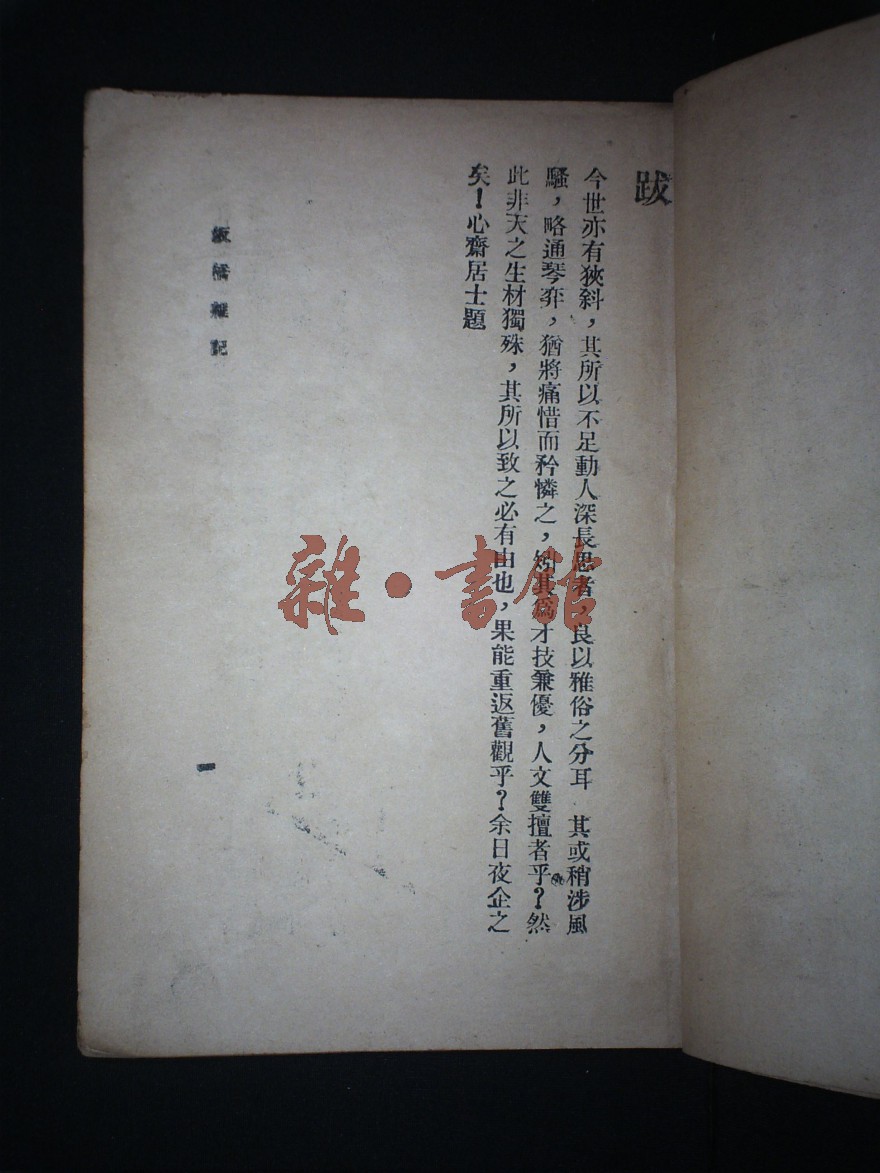 跋
今世亦有狹斜，其所以不足動人深長思者，良以雅俗之分耳 其或稍涉風
騷，略通琴弈，猶將痛惜而矜憐之，矧其爲才技兼優，人文雙擅者乎？然
此非天之生材獨殊，其所以致之必有由也，果能重返舊觀乎？余日夜企之
矣！心齋居士題
板橋雜記
一
雜·書館